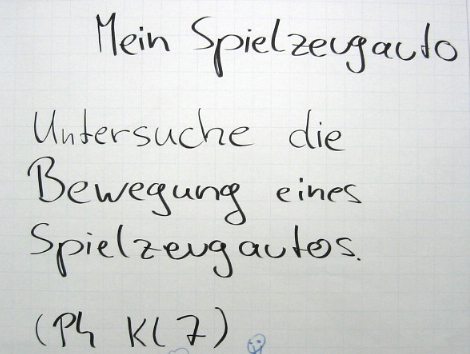 Mein Spielzeugauto
Untersuche die
Bewegung eines
Spielzeugautos.
(Ph Kl 7)